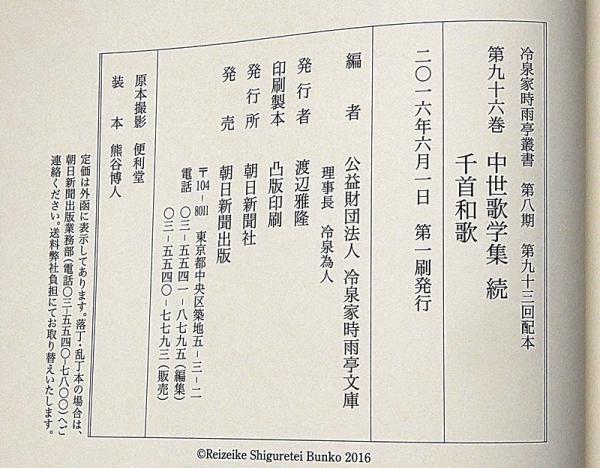 冷泉家時雨亭叢書 第八期 第九十三回配本
第九十六巻 中世歌学集 続
千首和歌
二〇一六年六月一日 第一刷発行
編者 公益財団法人 冷泉家時雨亭文庫
理事長 冷泉為人
発行者 渡辺雅隆
印刷製本 凸版印刷
発行所 朝日新聞社
発売 朝日新聞出版
〒104-8011 東京都中央区築地五-三-二
電話 〇三-五五四一-八七九五(編集)
〇三-五五四〇-七七九三(販売)
原本撮影 便利堂
装本 熊谷博人
定価は外函に表示してあります。落丁・乱丁本の場合は、
朝日新聞出版業務部(電話〇三-五五四〇-七八〇〇)へご
連絡ください。送料弊社負担にてお取り替えいたします。
©Reizeike Shiguretei Bunko 2016